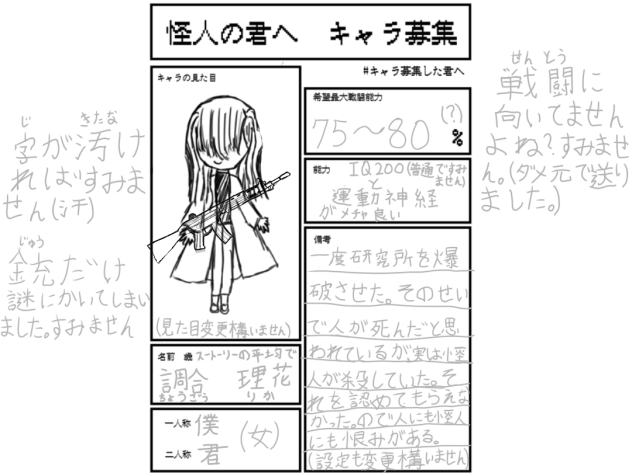 怪人の君へ キャラ募集
#キャラ募集した君へ
キャラの見た目
(見た目変更構いません)
名前
ストーリーの平均で
調合 理花
ちょうごう りか
一人称 僕
二人称 君
(女)
希望最大戦闘能力
75〜80(?)%
能力
IQ200(普通ですみ
ません)
と
運動神経
がメチャ良い
備考
一度研究所を爆
破させた。そのせい
で人が死んだと思
われているが、実は小怪
人が殺していた。そ
れを認めてもらえな
かった。ので人にも怪人
にも恨みがある。
(設定も変更構いません)
じ きたな
字が汚け
ればすみま
せん(汗)
じゅう
銃だけ
謎にかいてしまい
ました。すみません
せんとう
戦闘に
向いてません
よね?すみませ
ん。(ダメ元で送り
ました。)